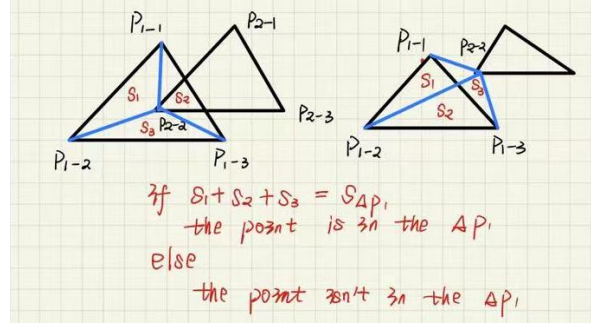 P1-1
P2-1
S1
S2
S3
P2-2
P2-3
P1-2
P1-3
P1-1
P2-2
S1
S2
S3
P1-2
P1-3
if S1+S2+S3 = S△P1
the point is in the △P1
else
the point isn't in the △P1